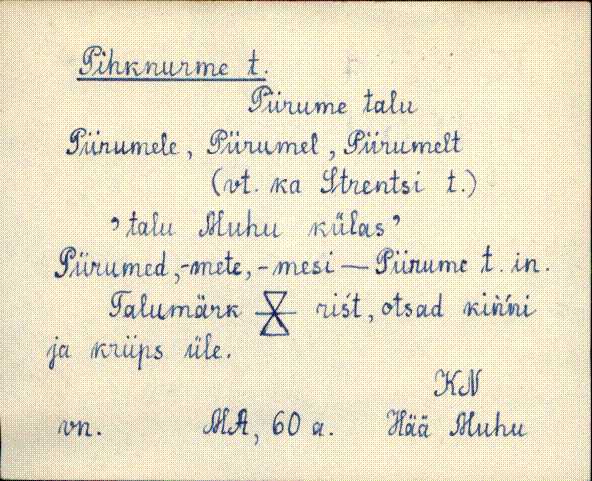 Pihknurme t.
Piirume talu
Piirumele, Piirumel, Piirumelt
(vt. ka Strentsi t.)
‚talu Muhu külas’
Piirumed, -mete, -mesi — Piirume t. in.
Talumärk rišt, otsad kińńi
ja kriips üle.
KN
vn. MA, 60 a. Hää Muhu